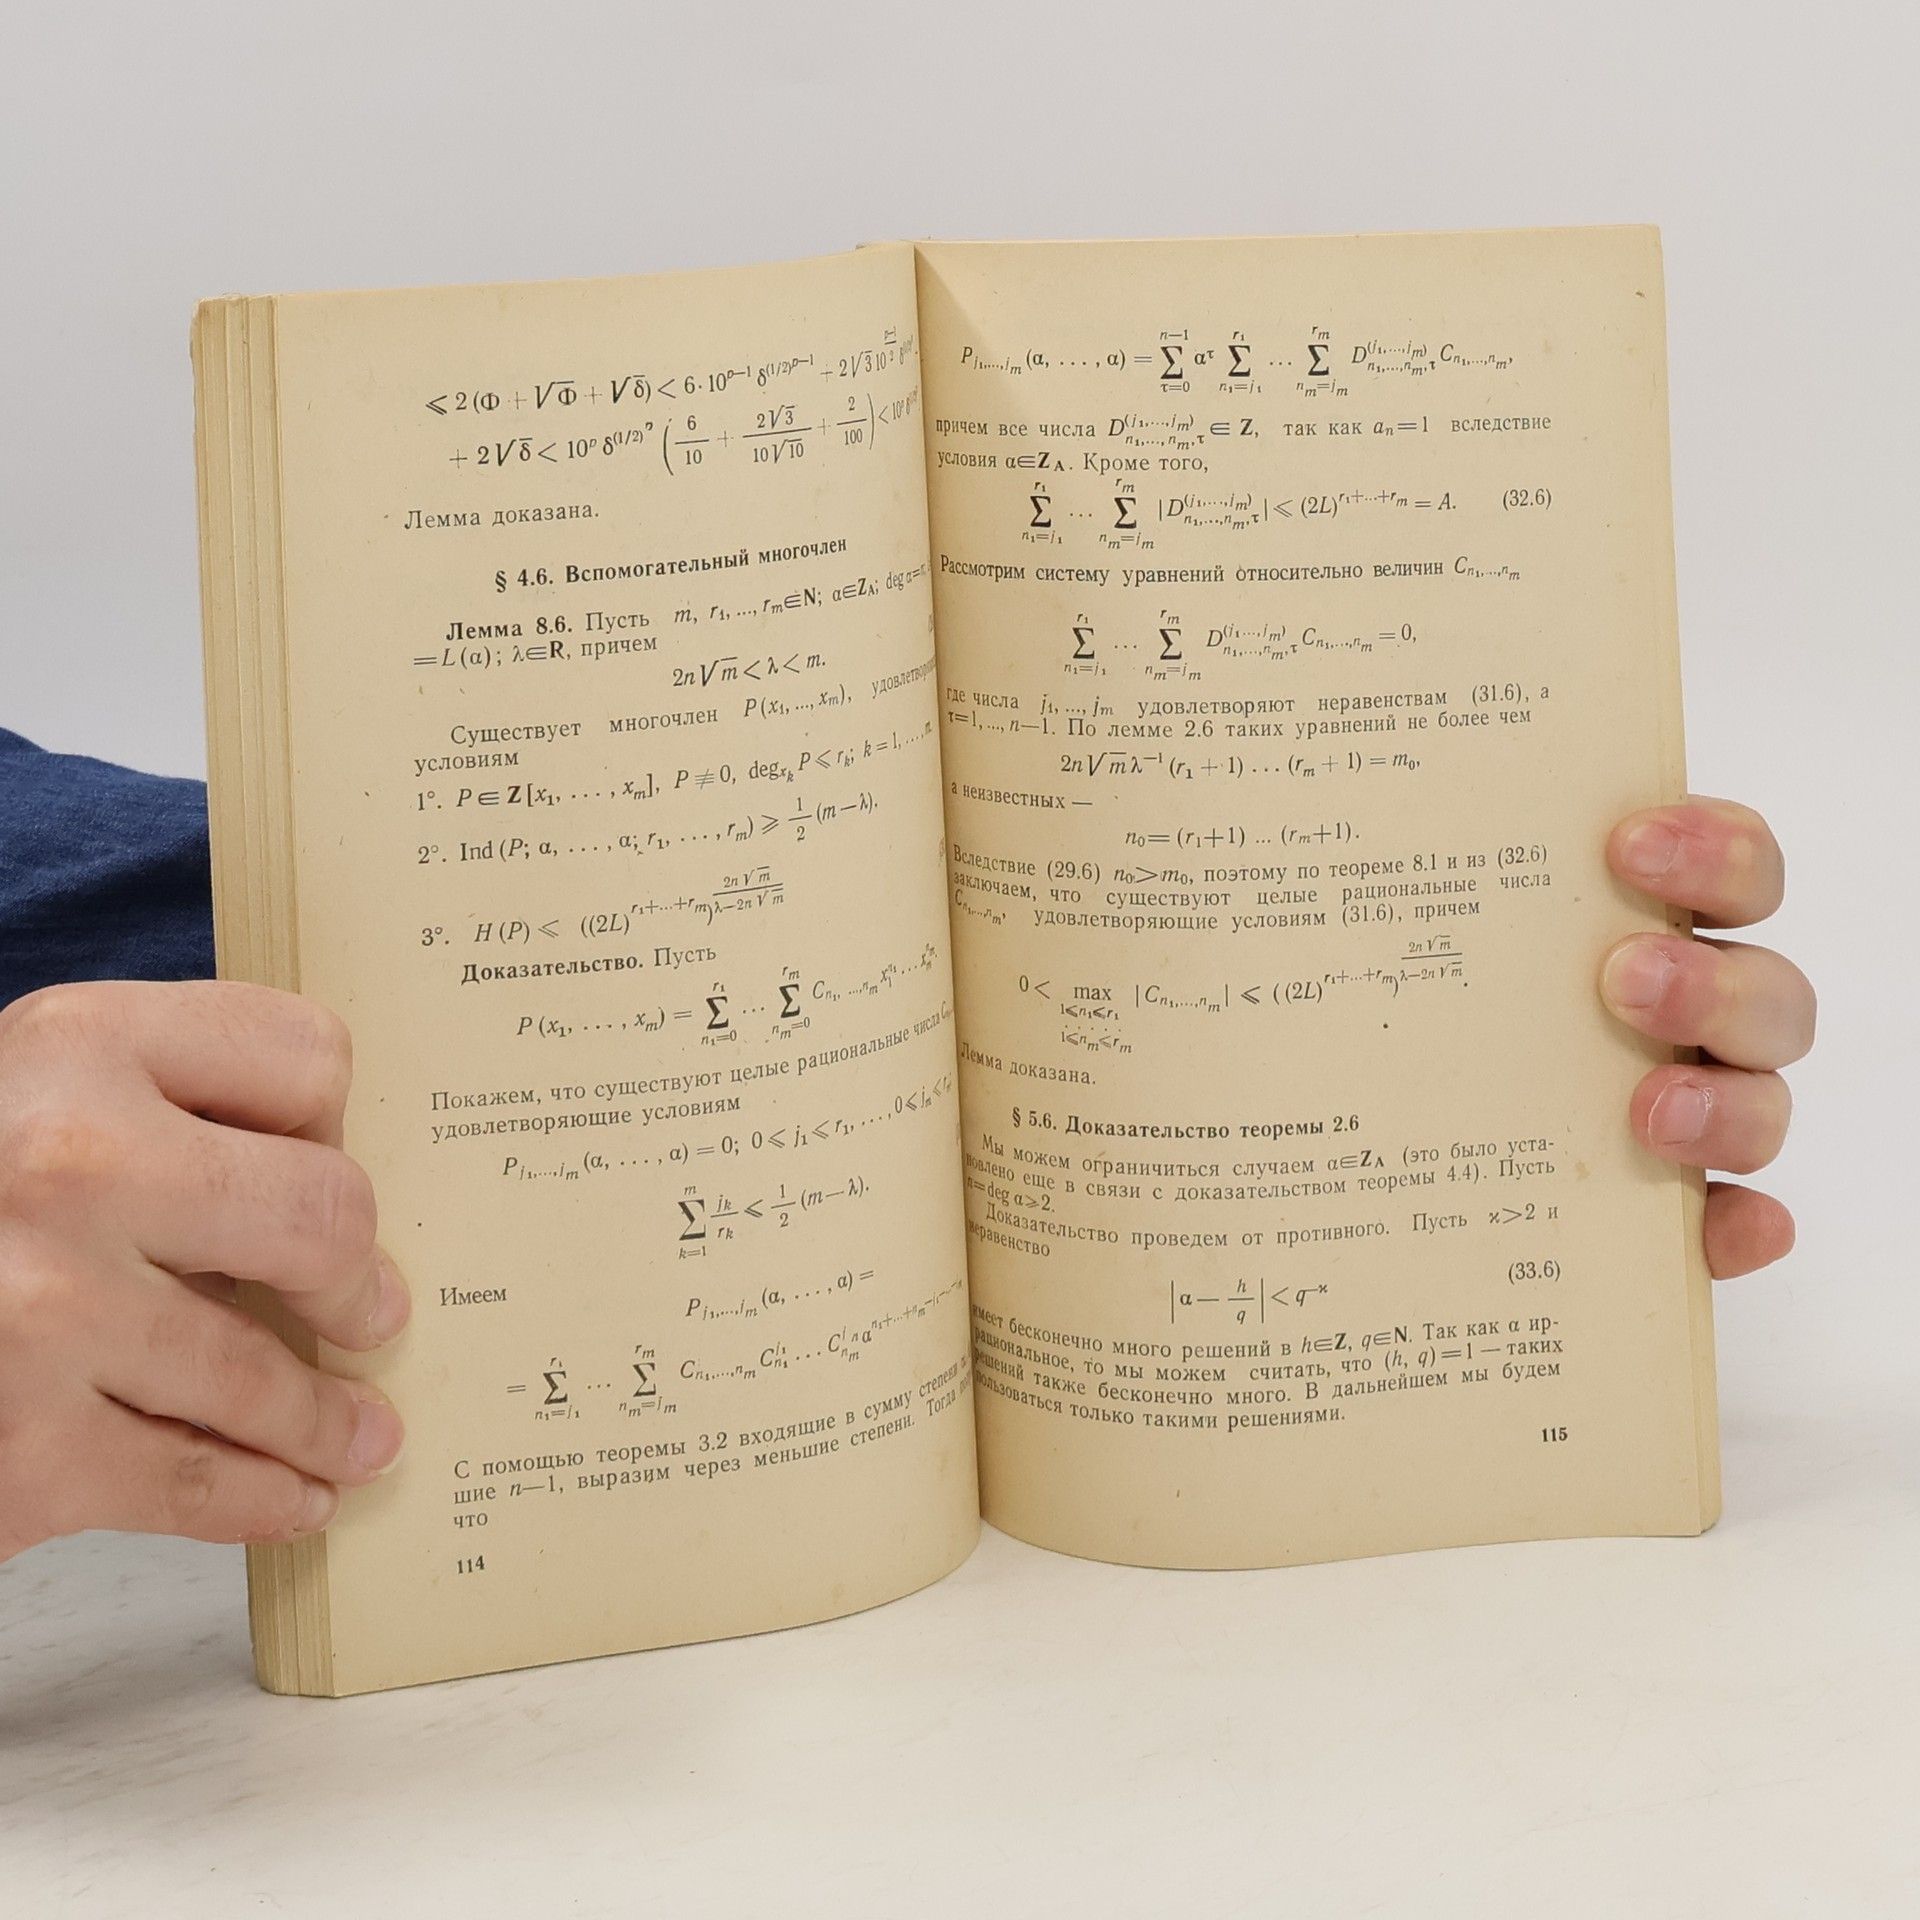 ⩽ 2 (Φ + √Φ + √δ) < 6·10^{p−1} δ^{(1/2)^{p−1}} + 2√3 10
+ 2√δ < 10^p δ^{(1/2)^p} (6/10 + 2√3/(10√10) + 2/100) < 10^p
Лемма доказана.
§ 4.6. Вспомогательный многочлен
Лемма 8.6. Пусть m, r₁, ..., r_m∈N; α∈Z_A; deg α=n,
=L(α); λ∈R, причем
2n√m < λ < m.
Существует многочлен P(x₁, ..., x_m),
условиям
1°. P ∈ Z[x₁, ..., x_m], P ≢ 0, deg_{x_k} P ⩽ r_k; k = 1, ..., m.
2°. Ind (P; α, ..., α; r₁, ..., r_m) ⩾ 1/2 (m−λ).
3°. H(P) ⩽ ((2L)^{r₁+...+r_m})^{2n√m/(λ−2n√m)}
Доказательство. Пусть
P(x₁, ..., x_m) = ∑_{n₁=0}^{r₁} ... ∑_{n_m=0}^{r_m} C_{n₁, ..., n_m} x₁^{n₁} ... x_m^{n_m}.
Покажем, что существуют целые рациональные числа
удовлетворяющие условиям
P_{j₁,...,j_m}(α, ..., α) = 0; 0 ⩽ j₁ ⩽ r₁, ..., 0 ⩽ j_m ⩽ r_m,
∑_{k=1}^{m} j_k/r_k ⩽ 1/2 (m−λ).
Имеем
P_{j₁,...,j_m}(α, ..., α) =
= ∑_{n₁=j₁}^{r₁} ... ∑_{n_m=j_m}^{r_m} C_{n₁,...,n_m} C_{n₁}^{j₁} ... C_{n_m}^{j_m} α^{n₁+...+n_m−j₁−...−j_m}
С помощью теоремы 3.2 входящие в сумму степени
шие n—1, выразим через меньшие степени. Тогда
что
114
P_{j₁,...,j_m}(α, ..., α) = ∑_{τ=0}^{n−1} α^τ ∑_{n₁=j₁}^{r₁} ... ∑_{n_m=j_m}^{r_m} D^{(j₁,...,j_m)}_{n₁,...,n_m,τ} C_{n₁,...,n_m},
причем все числа D^{(j₁,...,j_m)}_{n₁,...,n_m,τ} ∈ Z, так как a_n=1 вследствие
условия α∈Z_A. Кроме того,
∑_{n₁=j₁}^{r₁} ... ∑_{n_m=j_m}^{r_m} |D^{(j₁,...,j_m)}_{n₁,...,n_m,τ}| ⩽ (2L)^{r₁+...+r_m} = A. (32.6)
Рассмотрим систему уравнений относительно величин C_{n₁,...,n_m}
∑_{n₁=j₁}^{r₁} ... ∑_{n_m=j_m}^{r_m} D^{(j₁...,j_m)}_{n₁,...,n_m,τ} C_{n₁,...,n_m} = 0,
где числа j₁, ..., j_m удовлетворяют неравенствам (31.6), а
τ=1, ..., n—1. По лемме 2.6 таких уравнений не более чем
2n√m λ^{−1} (r₁ + 1) ... (r_m + 1) = m₀,
а неизвестных —
n₀= (r₁+1) ... (r_m+1).
Вследствие (29.6) n₀>m₀, поэтому по теореме 8.1 и из (32.6)
заключаем, что существуют целые рациональные числа
C_{n₁,...,n_m}, удовлетворяющие условиям (31.6), причем
0 < max_{1⩽n₁⩽r₁ ..... 1⩽n_m⩽r_m} |C_{n₁,...,n_m}| ⩽ ((2L)^{r₁+...+r_m})^{2n√m/(λ−2n√m)}.
Лемма доказана.
§ 5.6. Доказательство теоремы 2.6
Мы можем ограничиться случаем α∈Z_A (это было уста-
новлено еще в связи с доказательством теоремы 4.4). Пусть
n=deg α⩾2.
Доказательство проведем от противного. Пусть ϰ>2 и
неравенство
|α − h/q| < q^{−ϰ} (33.6)
имеет бесконечно много решений в h∈Z, q∈N. Так как α ир-
рациональное, то мы можем считать, что (h, q)=1 — таких
решений также бесконечно много. В дальнейшем мы будем
пользоваться только такими решениями.
115